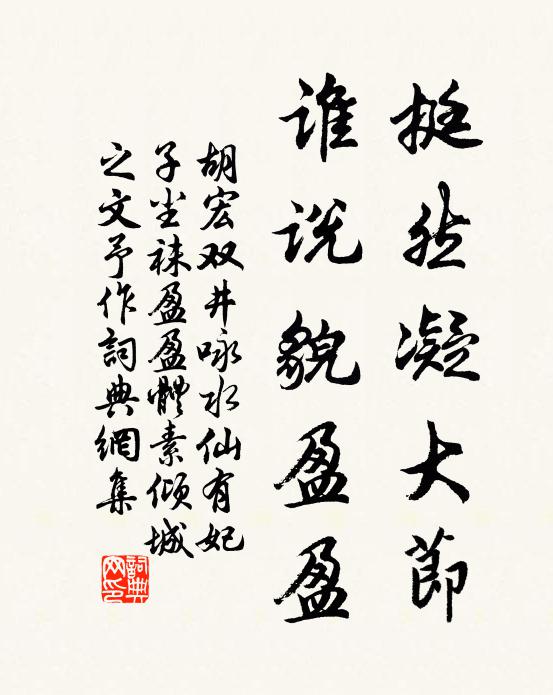 挺然凝大節
谁说貌盈盈
胡宏双井咏水仙有妃
子尘袜盈盈體素倾城
之文予作詞典網集